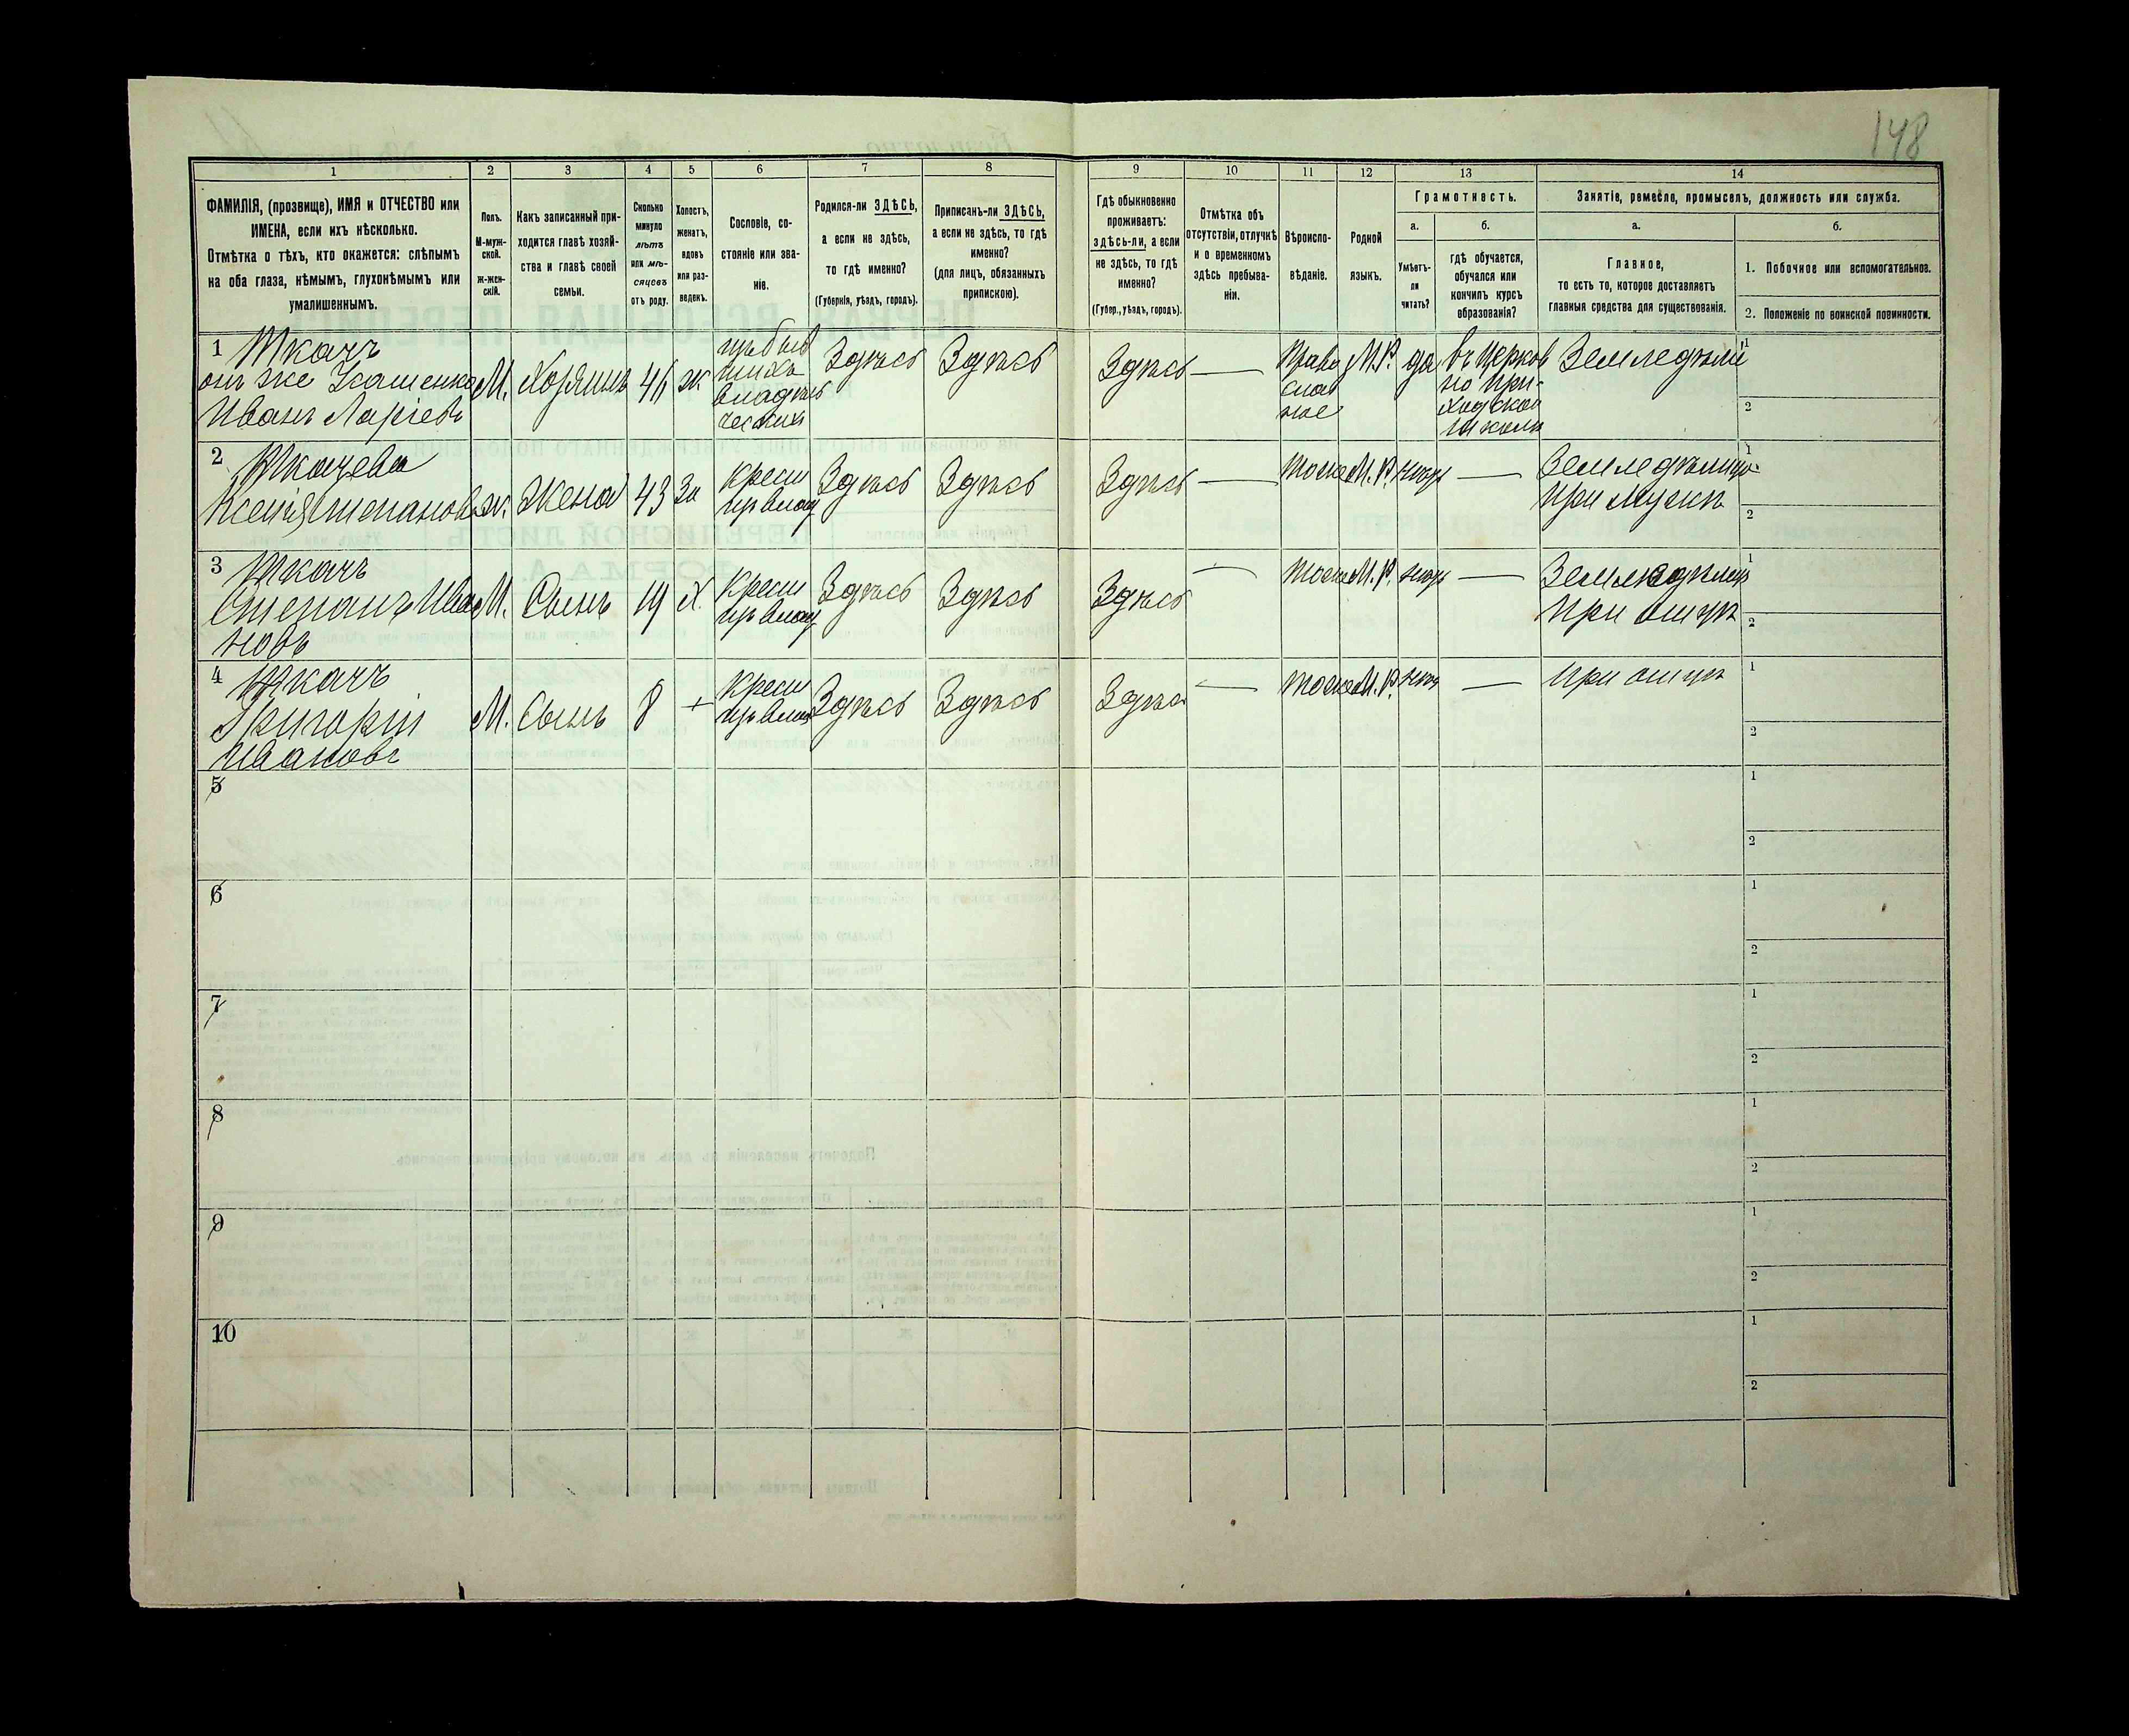 148
1 2 3 4 5 6 7 8 9 10 11 12 13 14
ФАМИЛІЯ, (прозвище), ИМЯ и ОТЧЕСТВО или
ИМЕНА, если ихъ нѣсколько.
Отмѣтка о тѣхъ, кто окажется: слѣпымъ
на оба глаза, нѣмымъ, глухонѣмымъ или
умалишеннымъ.
Полъ.
М-муж-
ской.
ж-жен-
скій.
Какъ записанный при-
ходится главѣ хозяй-
ства и главѣ своей
семьи.
Сколько
минуло
лѣтъ
или мѣ-
сяцевъ
отъ роду.
Холостъ,
женатъ,
вдовъ
или раз-
веденъ.
Сословіе, со-
стояніе или зва-
ніе.
Родился-ли ЗДѢСЬ,
а если не здѣсь,
то гдѣ именно?
(Губернія, уѣздъ, городъ).
Приписанъ-ли ЗДѢСЬ,
а если не здѣсь, то гдѣ
именно?
(для лицъ, обязанныхъ
припискою).
Гдѣ обыкновенно
проживаетъ:
здѣсь-ли, а если
не здѣсь, то гдѣ
именно?
(Губер., уѣздъ, городъ).
Отмѣтка объ
отсутствіи, отлучкѣ
и о временномъ
здѣсь пребыва-
ніи.
Вѣроиспо-
вѣданіе.
Родной
языкъ.
Грамотность.
а.
Умѣетъ-
ли
читать?
б.
гдѣ обучается,
обучался или
кончилъ курсъ
образованія?
Занятіе, ремесло, промыселъ, должность или служба.
а.
Главное,
то есть то, которое доставляетъ
главныя средства для существованія.
б.
1. Побочное или вспомогательное.
2. Положеніе по воинской повинности.
1 Ткачъ
онъ же
Иванъ Ларіевъ
М. Хозяинъ 46 ж.
изъ быв
шихъ
владѣль
ческихъ
Здѣсь Здѣсь Здѣсь —
Право
слав
ное
М.Р. да
въ Церков
но при-
ходской
школѣ
Земледѣлие
1
2
2 Ткачева
Ксенія Степанова
ж. Жена 43 За
Крест
изъ влад
Здѣсь Здѣсь Здѣсь — тоже М.Р. нетъ —
Земледѣлие
при мужѣ
1
2
3 Ткачъ
Степанъ Ива
новъ
М. Сынъ 19 Х.
Крест
изъ влад
Здѣсь Здѣсь Здѣсь — тоже М.Р. нетъ —
Земледѣлие
при отцѣ
1
2
4 Ткачъ
Григорій
Ивановъ
М. Сынъ 8 +
Крест
изъ влад
Здѣсь Здѣсь Здѣсь — тоже М.Р. нетъ — при отцѣ
1
2
5
1
2
6
1
2
7
1
2
8
1
2
9
1
2
10
1
2